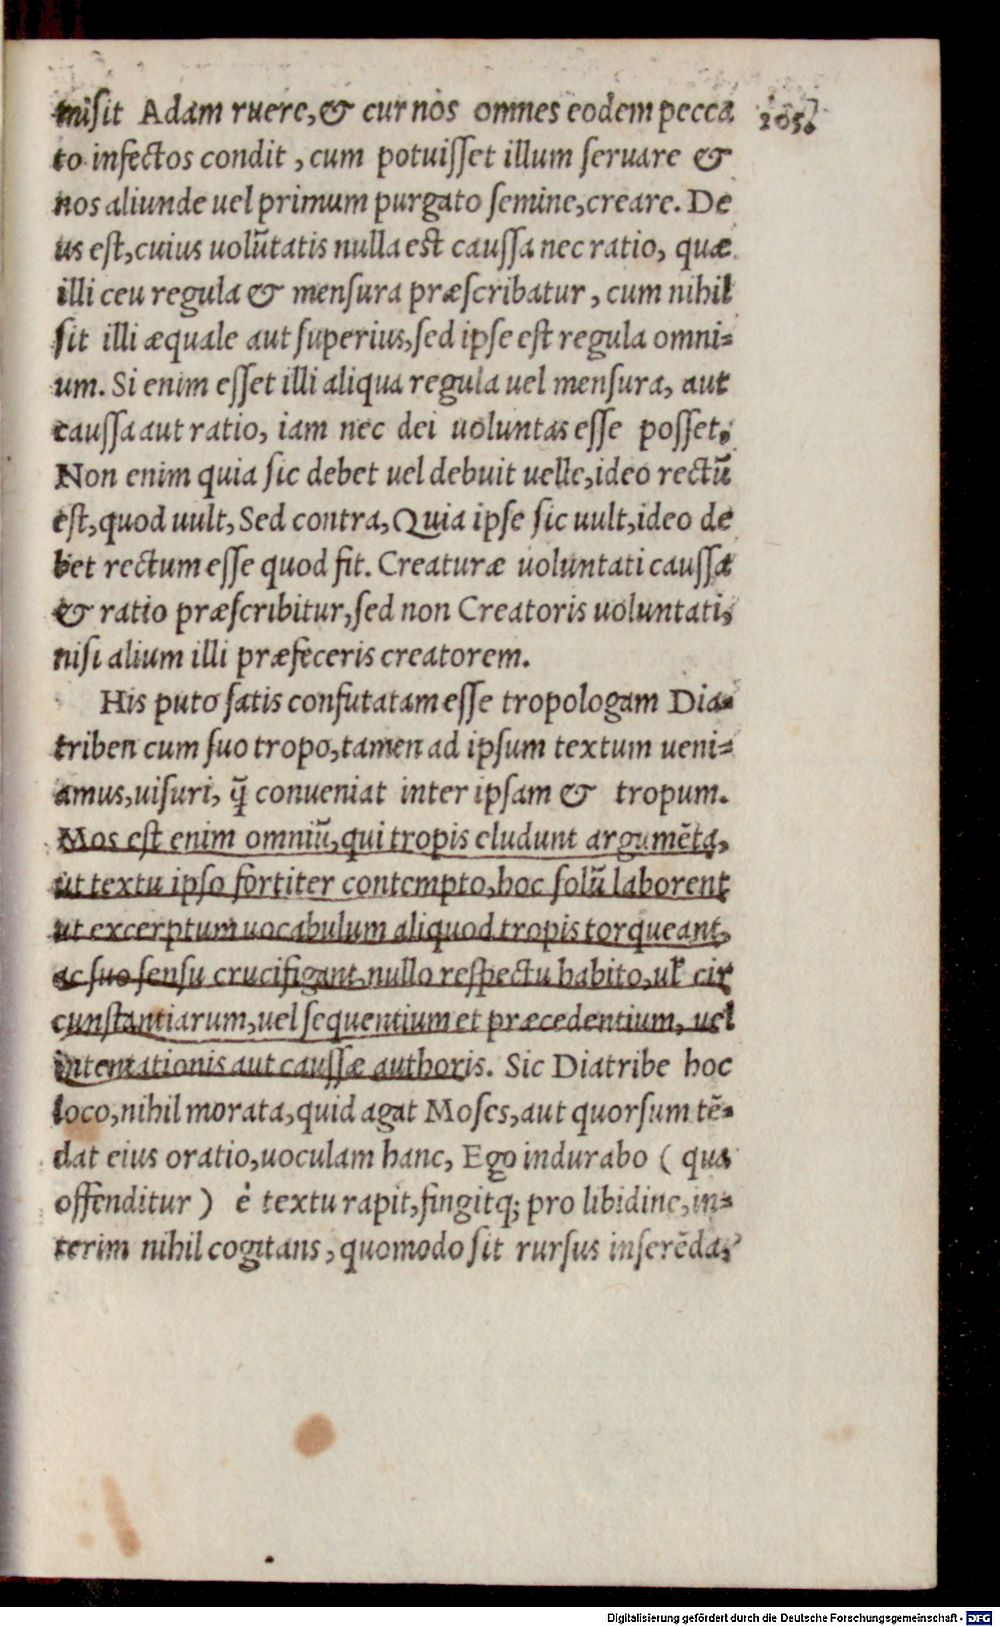 misit Adam ruere, & cur nos omnes eodem pecca
105.
to infectos condit, cum potuisset illum seruare &
nos aliunde uel primum purgato semine, creare. De
us est, cuius uolũtatis nulla est caussa nec ratio, quæ
illi ceu regula & mensura præscribatur, cum nihil
sit illi æquale aut superius, sed ipse est regula omni-
um. Si enim esset illi aliqua regula uel mensura, aut
caussa aut ratio, iam nec dei uoluntas esse posset.
Non enim quia sic debet uel debuit uelle, ideo rectũ
est, quod uult, Sed contra, Quia ipse sic uult, ideo de
bet rectum esse quod fit. Creaturæ uoluntati caussa
& ratio præscribitur, sed non Creatoris uoluntati,
nisi alium illi præfeceris creatorem.
His puto satis confutatam esse tropologam Dia-
triben cum suo tropo, tamen ad ipsum textum ueni-
amus, uisuri, q̃ conueniat inter ipsam & tropum.
Mos est enim omniũ, qui tropis eludunt argumẽta,
ut textu ipso fortiter contempto, hoc solũ laborent
ut excerptum uocabulum aliquod tropis torqueant,
ac suo sensu crucifigant, nullo respectu habito, uł cir
cunstantiarum, uel sequentium et præcedentium, uel
intentationis aut caussæ authoris. Sic Diatribe hoc
loco, nihil morata, quid agat Moses, aut quorsum tẽ-
dat eius oratio, uoculam hanc, Ego indurabo ( qua
offenditur ) è textu rapit, fingitq; pro libidine, in-
terim nihil cogitans, quomodo sit rursus inserẽda,
Digitalisierung gefördert durch die Deutsche Forschungsgemeinschaft - DFG